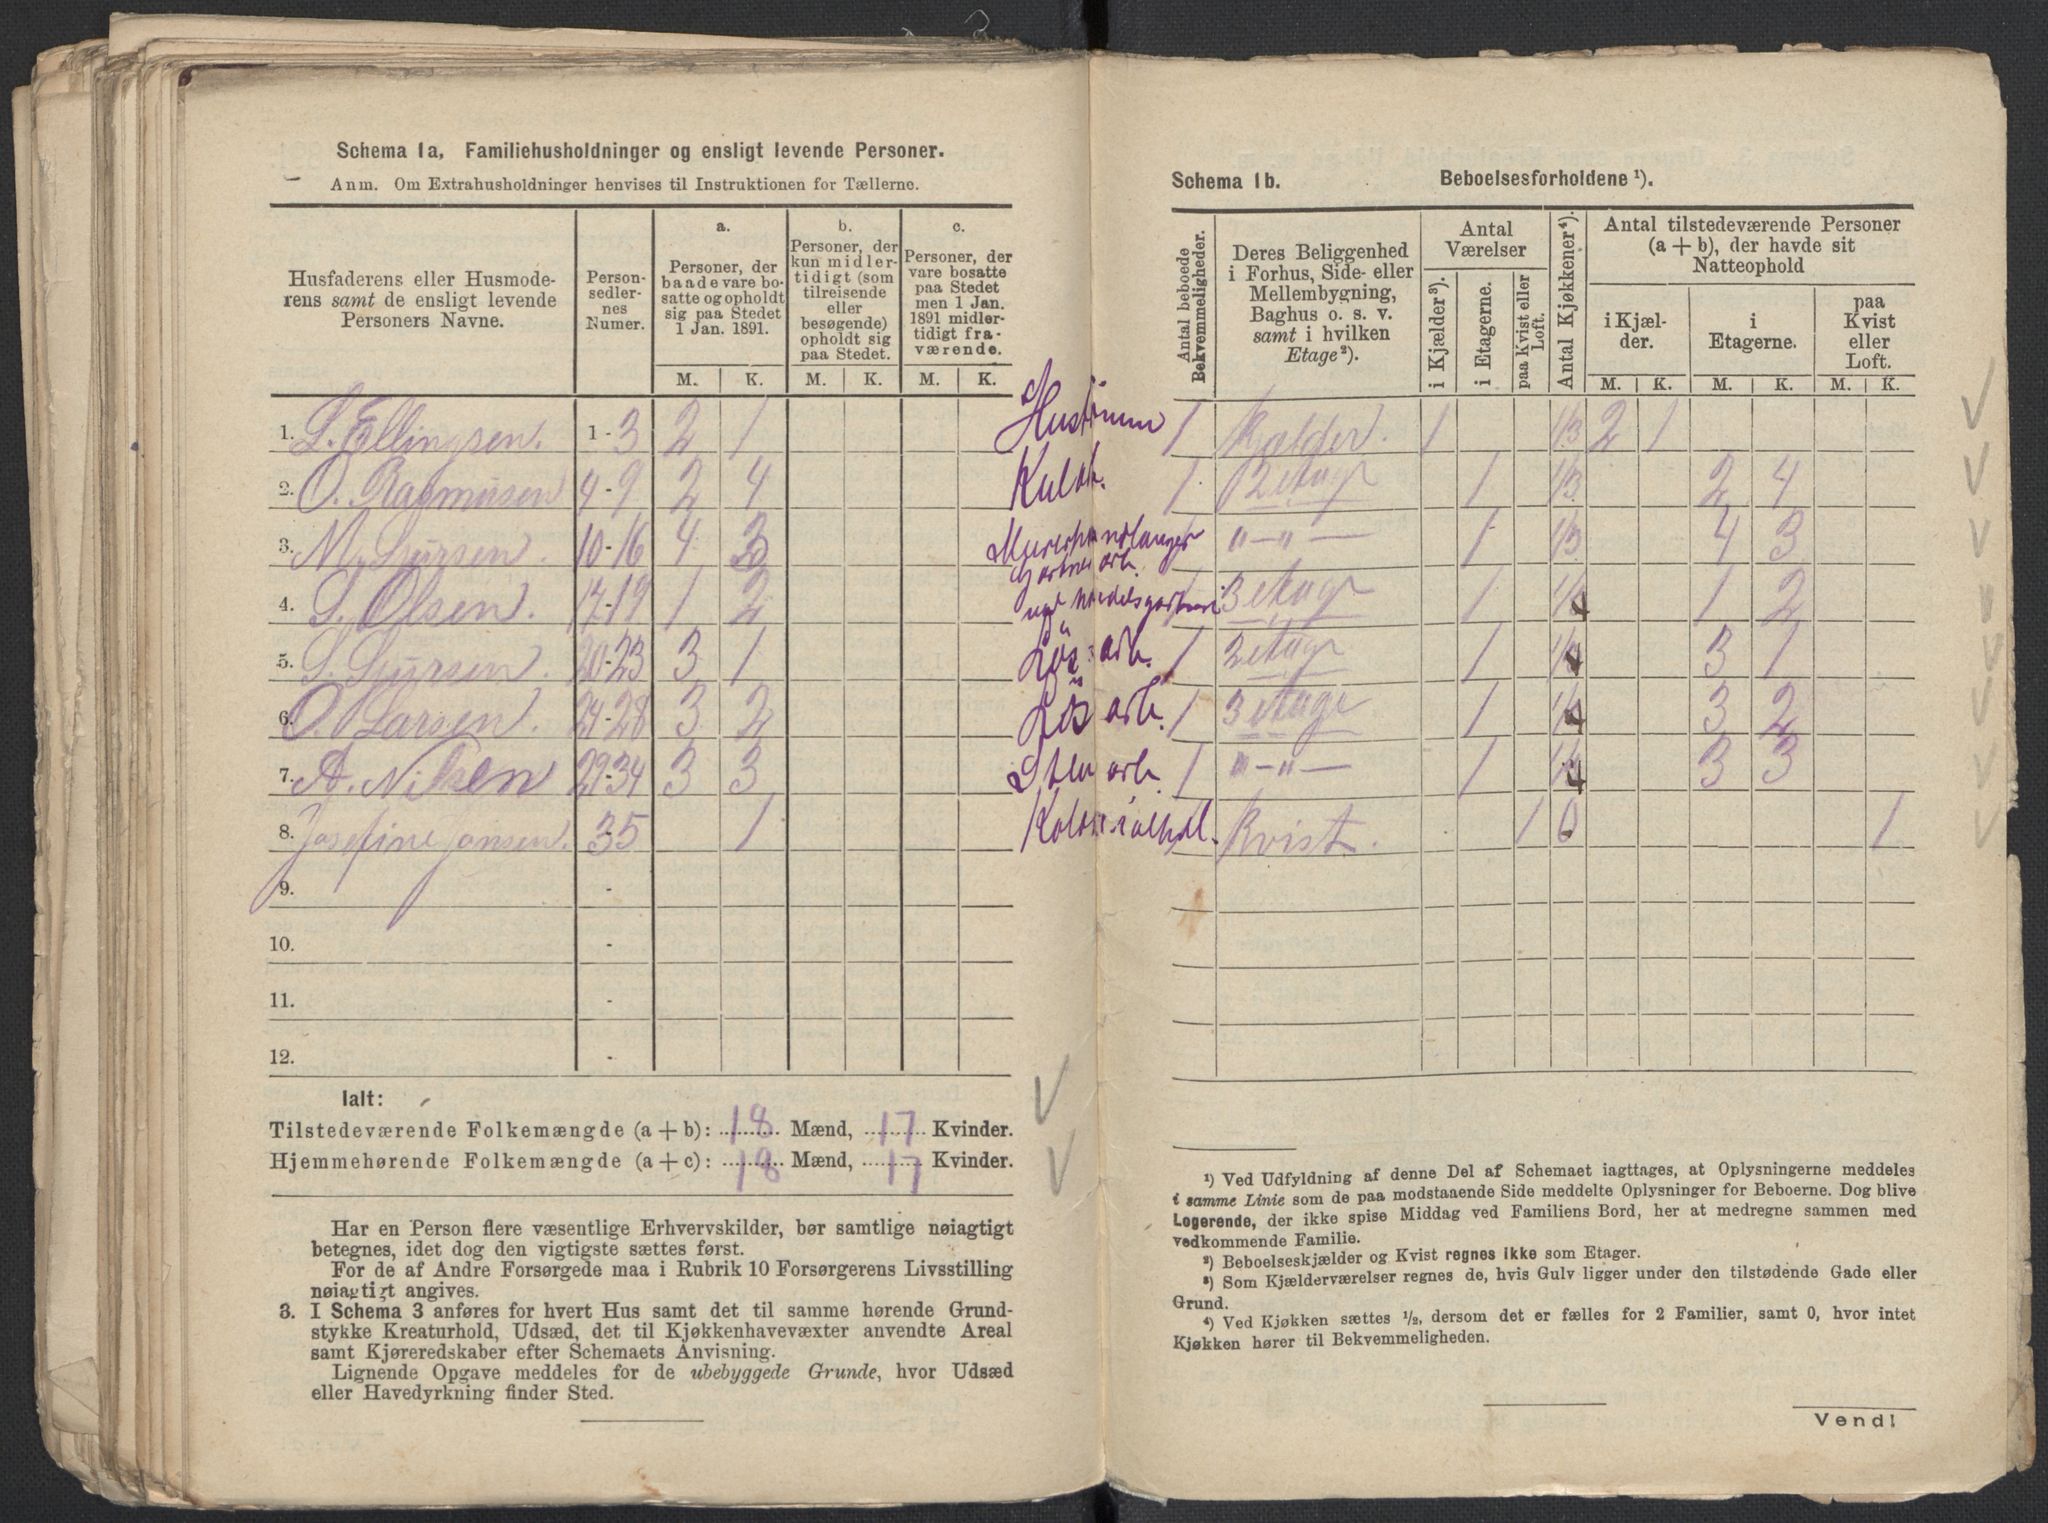 Schema 1a, Familiehusholdninger og ensligt levende Personer.
Anm. Om Extrahusholdninger henvises til Instruktionen for Tællerne.
Husfaderens eller Husmode-
rens samt de ensligt levende
Personers Navne.
Person-
sedler-
nes
Numer.
a.
Personer, der
baade vare bo-
satte og opholdt
sig paa Stedet
1 Jan. 1891.
b.
Personer, der
kun midler-
tidigt (som
tilreisende
eller
besøgende)
opholdt sig
paa Stedet.
c.
Personer, der
vare bosatte
paa Stedet
men 1 Jan.
1891 midler-
tidigt fra-
værende.
M. K. M. K. M. K.
1. L. Ellingsen. 1-3 2 1
2. O. Rasmusen 4-9 2 4
3. M. Larsen. 10-16 4 3
4. S. Olsen. 17-19 1 2
5. S. Larsen. 20-23 3 1
6. O. Larsen. 24-28 3 2
7. A. Nilsen 29-34 3 3
8. Josefine Jansen. 35 1
9. -
10. -
11. -
12. -
Ialt:
Tilstedeværende Folkemængde (a + b): 18 Mænd, 17 Kvinder.
Hjemmehørende Folkemængde (a + c): 18 Mænd, 17 Kvinder.
Har en Person flere væsentlige Erhvervskilder, bør samtlige nøiagtigt
betegnes, idet dog den vigtigste sættes først.
For de af Andre Forsørgede maa i Rubrik 10 Forsørgerens Livsstilling
nøiagtigt angives.
3. I Schema 3 anføres for hvert Hus samt det til samme hørende Grund-
stykke Kreaturhold, Udsæd, det til Kjøkkenhavevæxter anvendte Areal
samt Kjøreredskaber efter Schemaets Anvisning.
Lignende Opgave meddeles for de ubebyggede Grunde, hvor Udsæd
eller Havedyrkning finder Sted.
Schema 1b. Beboelsesforholdene ¹).
Antal beboede
Bekvemmeligheder.
Deres Beliggenhed
i Forhus, Side- eller
Mellembygning,
Baghus o. s. v.
samt i hvilken
Etage²).
Antal
Værelser
i Kjælder³).
i Etagerne.
paa Kvist eller
Loft.
Antal Kjøkkener⁴).
Antal tilstedeværende Personer
(a + b), der havde sit
Natteophold
i Kjæl-
der.
i
Etagerne.
paa
Kvist
eller
Loft.
M. K. M. K. M. K.
Hustømm 1 Kjælder. 1 1/3 2 1
1 2 etage 1 1/3 2 4
Murerhandlanger 1 "-"- 1 1/3 4 3
Gartnerarb.
3 etage 1 1/4 1 2
Løs arb. 1 2 etage 1 1/4 3 1
Løs arb. 1 3 etage 1 1/4 3 2
Sten arb. 1 "-"- 1 1/4 3 3
Kolonialhdl. Kvist. 1 0 1
¹) Ved Udfyldning af denne Del af Schemaet iagttages, at Oplysningerne meddeles
i samme Linie som de paa modstaaende Side meddelte Oplysninger for Beboerne. Dog blive
Logerende, der ikke spise Middag ved Familiens Bord, her at medregne sammen med
vedkommende Familie.
²) Beboelseskjælder og Kvist regnes ikke som Etager.
³) Som Kjælderværelser regnes de, hvis Gulv ligger under den tilstødende Gade eller
Grund.
⁴) Ved Kjøkken sættes ½, dersom det er fælles for 2 Familier, samt 0, hvor intet
Kjøkken hører til Bekvemmeligheden.
Vend!